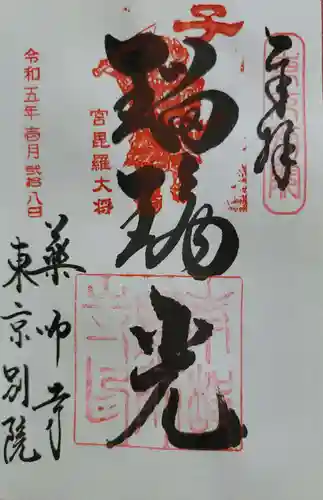 奉拝
子
瑠璃光
宮毘羅大将
令和五年壱月弐拾八日
薬師寺
東京別院